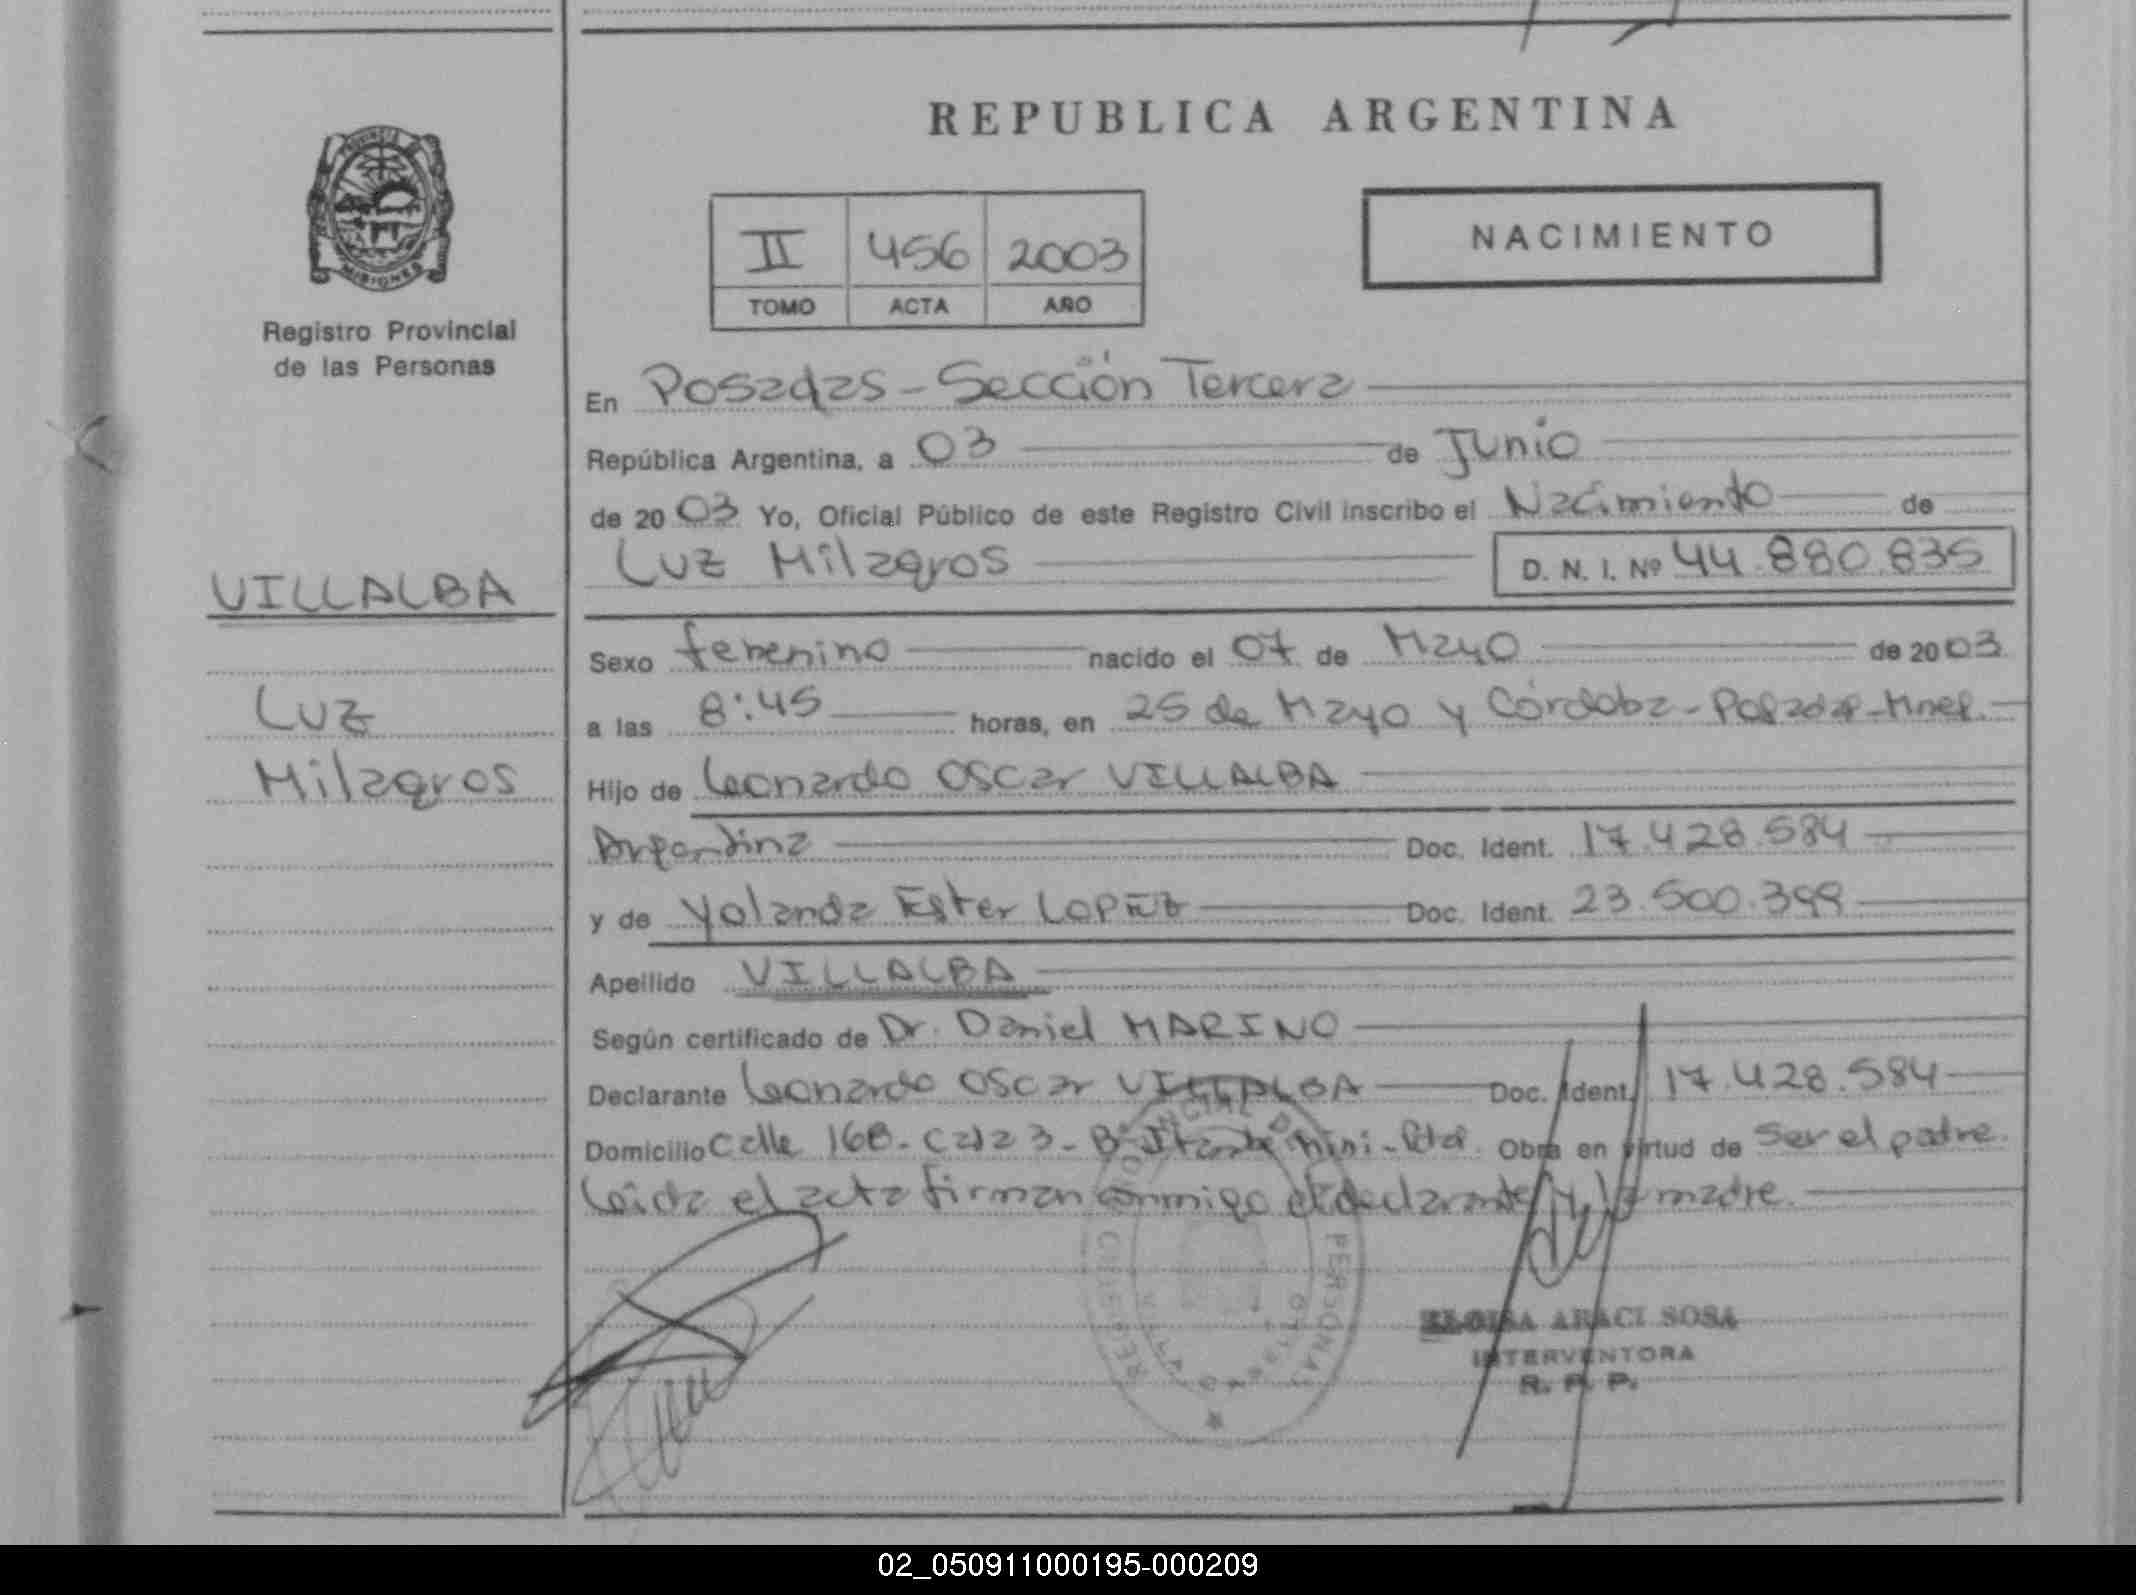 REPUBLICA ARGENTINA
NACIMIENTO
II 456 2003
TOMO ACTA AÑO
PROVINCIA DE
MISIONES
Registro Provincial
de las Personas
VILLALBA
Luz
Milagros
En Posadas - Sección Tercera
República Argentina, a 03 de Junio
de 2003 Yo, Oficial Público de este Registro Civil inscribo el Nacimiento de
Luz Milagros D. N. I. Nº 44.880.835
Sexo femenino nacido el 07 de Mayo de 2003
a las 8:45 horas, en 25 de Mayo y Córdoba - Posadas - Mnes.
Hijo de Leonardo Oscar VILLALBA
Argentina Doc. Ident. 17.428.584
y de Yolanda Ester LOPEZ Doc. Ident. 23.500.399
Apellido VILLALBA
Según certificado de Dr. Daniel MARINO
Declarante Leonardo Oscar VILLALBA Doc. Ident. 17.428.584
Domicilio Calle 168 - Casa 3 - Bº Itaembé Mini - Obra en virtud de ser el padre.
Leída el acta firman conmigo el declarante y la madre.
ELOISA ARACI SOSA
INTERVENTORA
R. P. P.
02_050911000195-000209